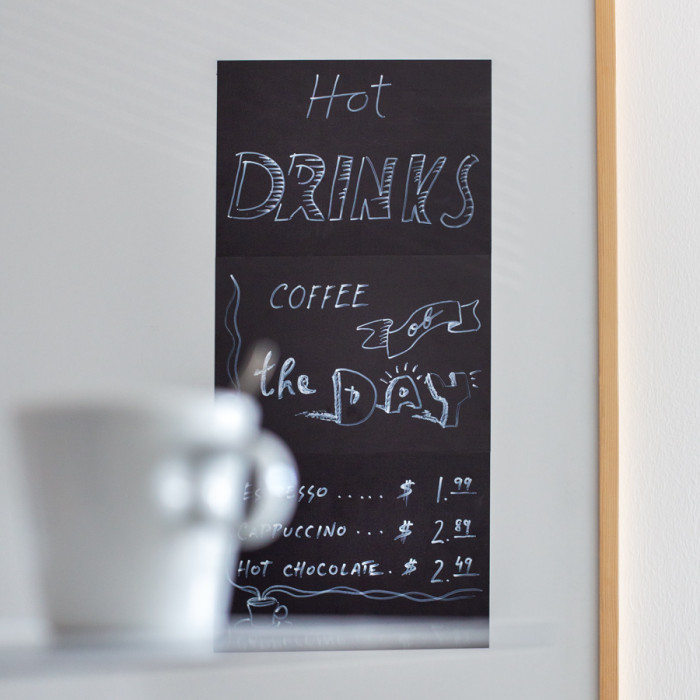 Hot
DRINKS
COFFEE
of
the DAY
ESPRESSO ..... $ 1.99
CAPPUCCINO ... $ 2.89
HOT CHOCOLATE. $ 2.49